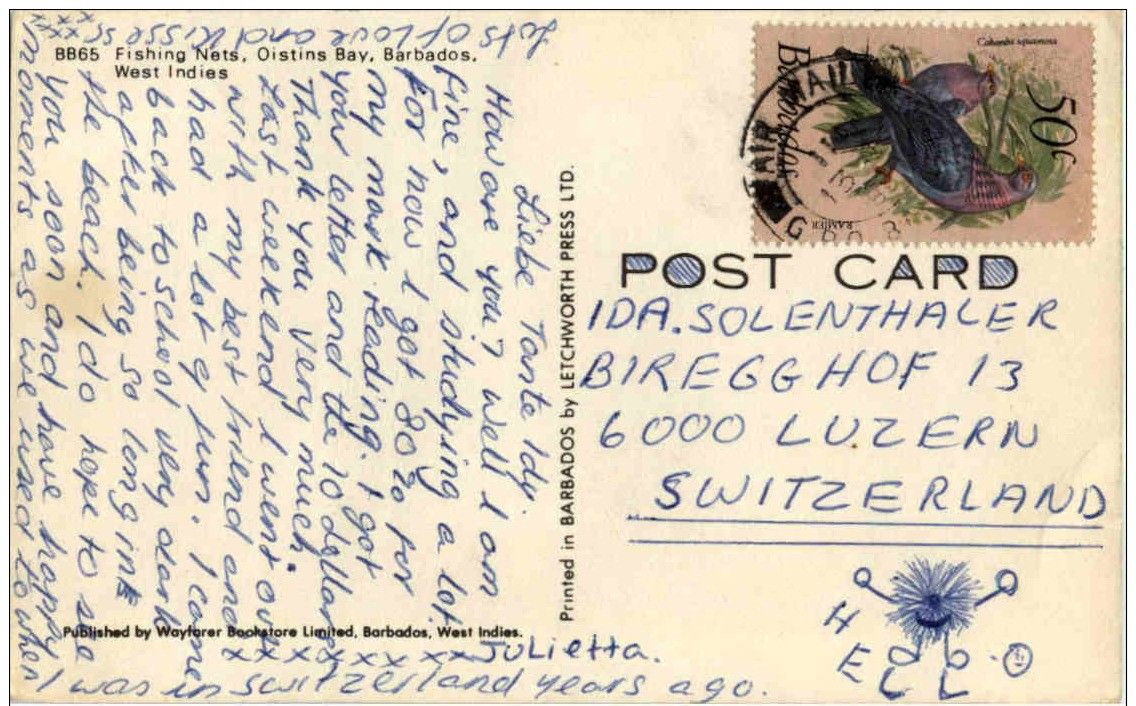 BB65 Fishing Nets, Oistins Bay, Barbados,
West Indies
Liebe Tante Idy.
How are you? Well I am
fine, and studying a lot.
For now I got 80% for
my mark reading. I got
your letter and the 10 dollars
Thank you very much.
Last weekend I went over
with my best friend and
had a lot of fun. I came
back to school very dark
after being so long in
the beach. I do hope to see
you soon and have happy
moments as we used to when
I was in Switzerland years ago.
Lots of Love and Kisses
xxxx
xxxxxxxxx Julietta.
Published by Wayfarer Bookstore Limited, Barbados, West Indies.
Printed in BARBADOS by LETCHWORTH PRESS LTD.
Barbados
50c
Columba squamosa
RAMIER
AIR MAIL
POST CARD
IDA. SOLENTHALER
BIREGGHOF 13
6000 LUZERN
SWITZERLAND
HELL